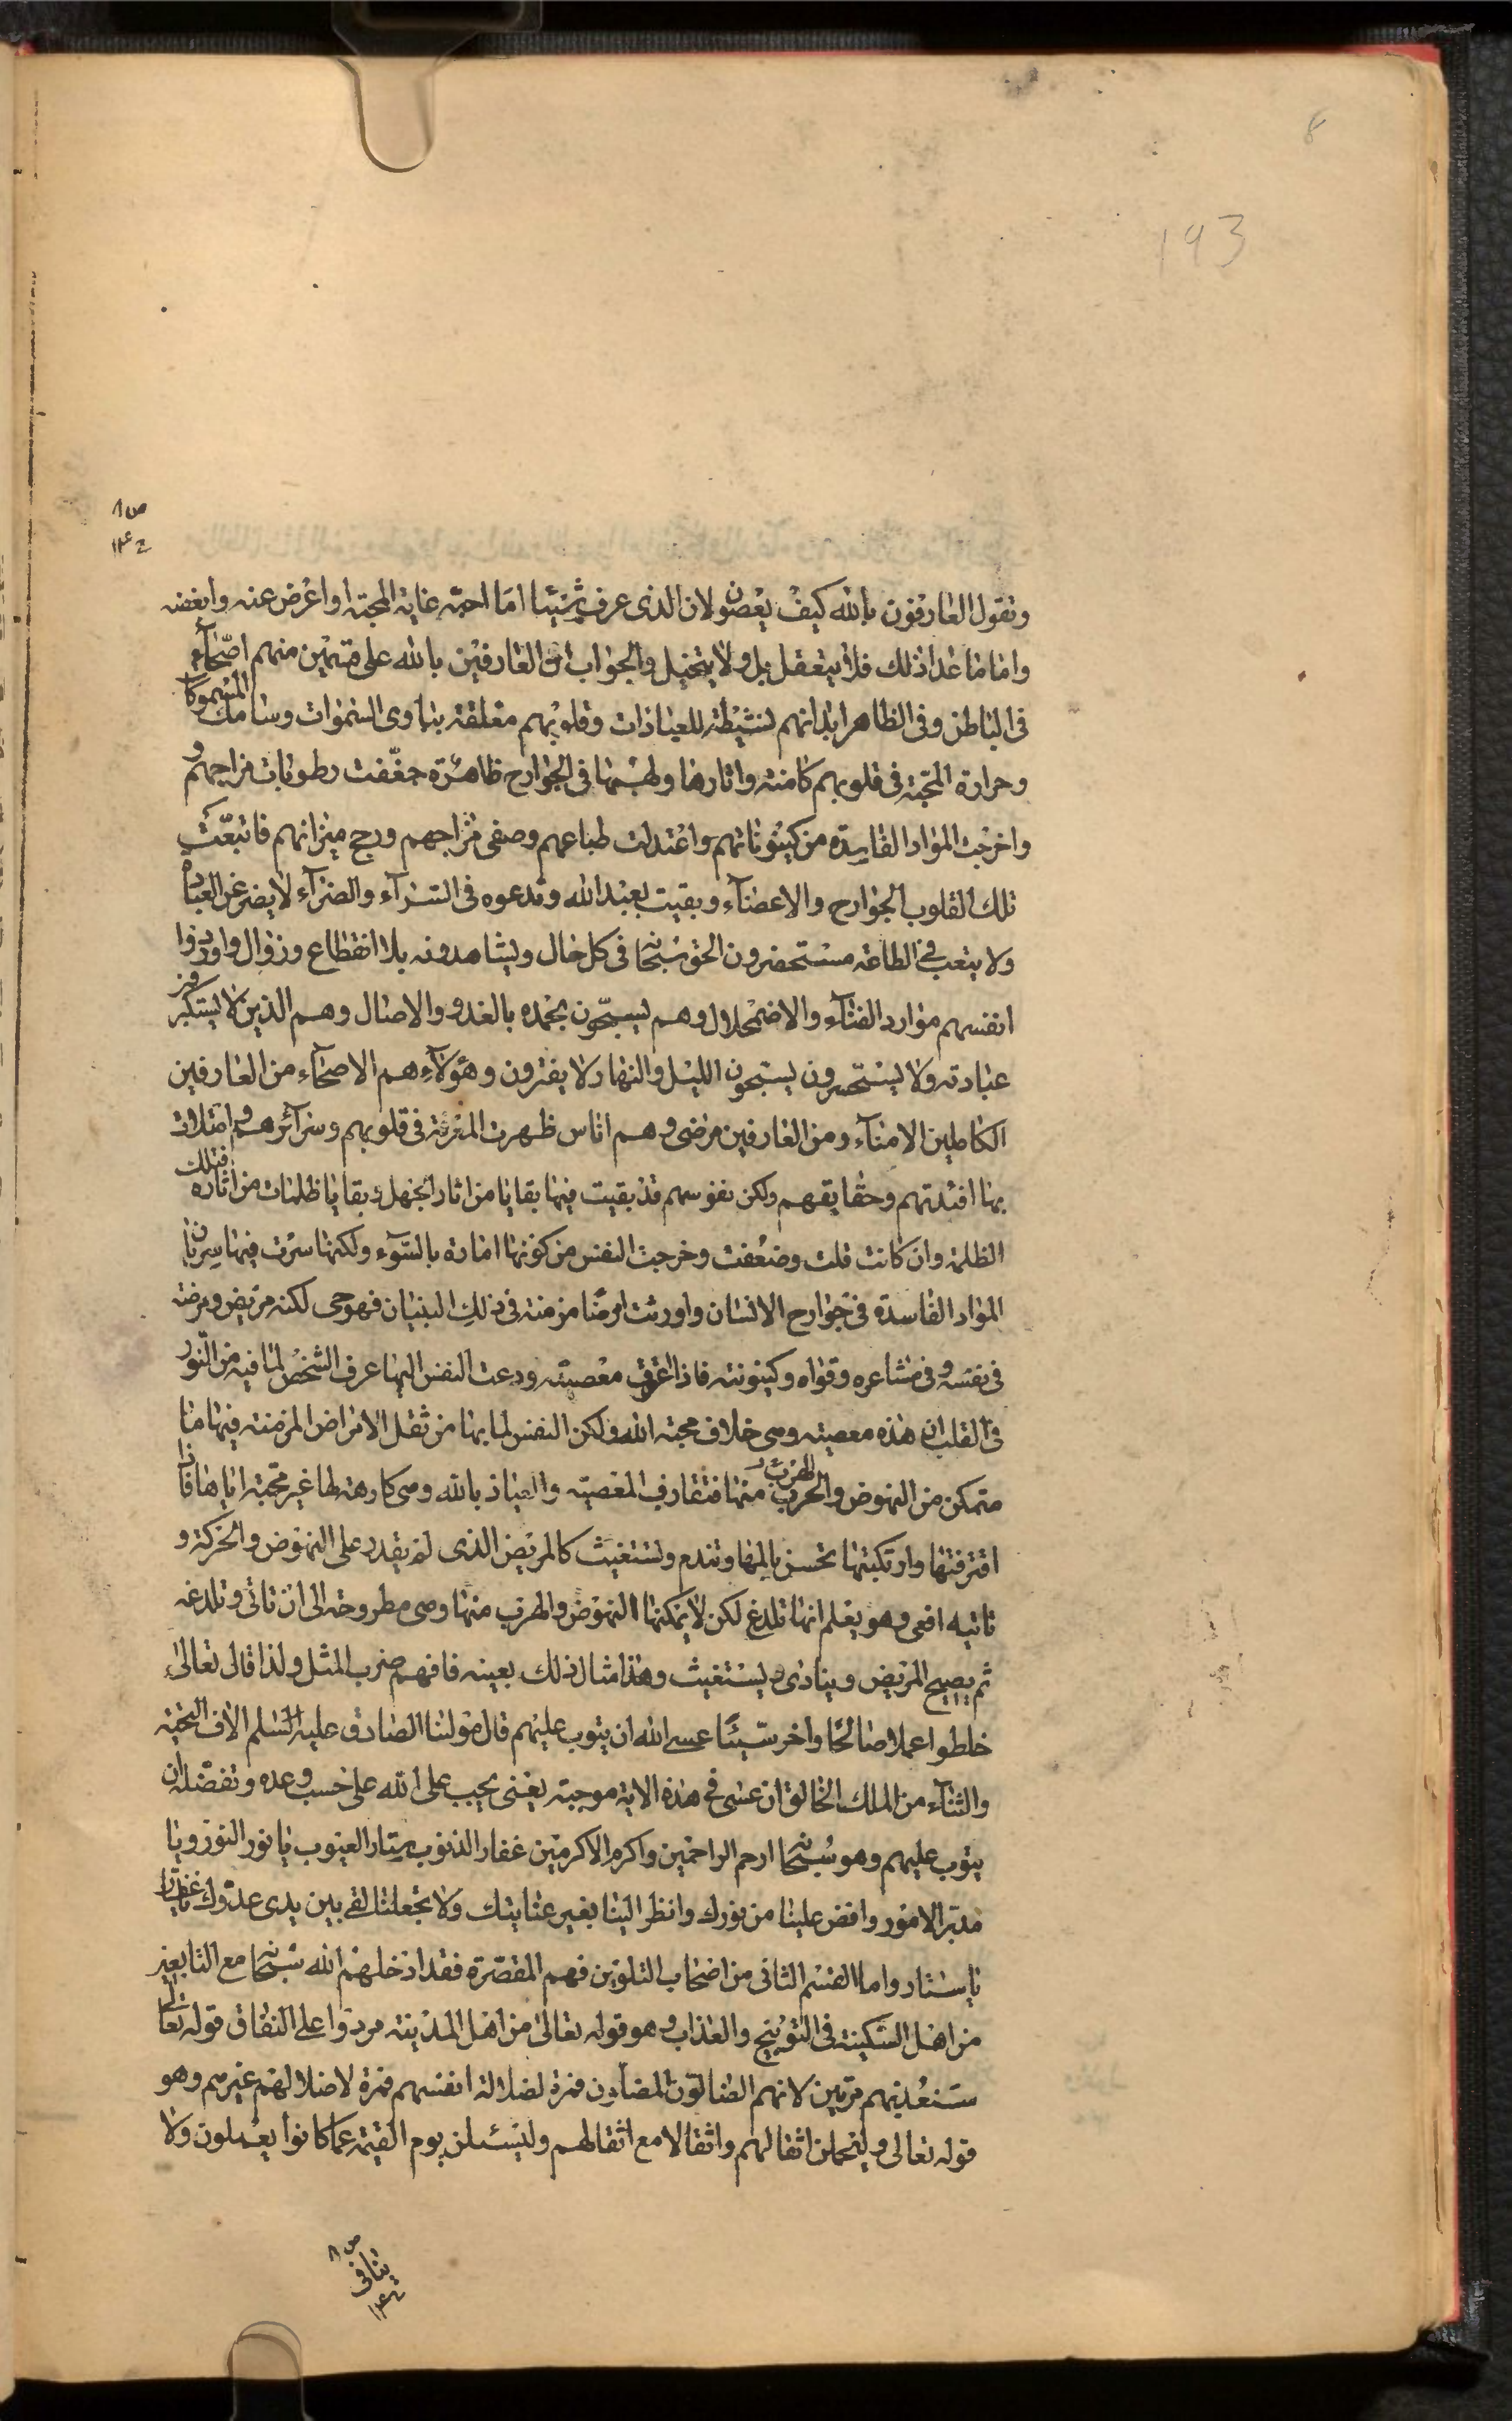 8
193
ص ٨
ج ١٣٤
ونقول العارفون بالله كيف يعصون لان الذى عرف شيئا اما احبّه غاية المحبة او اعرض عنه وابغضه
واما ما عدا ذلك فلا يتعقل بل ولا يتخيل والجواب ان العارفين بالله على قسمين منهم اصحّاء
فى الباطن وفى الظاهر ابدانهم نشيطة للعبادات وقلوبهم معلقة بداوى السموات وسامك المسموكا
وحرارة المحبّة فى قلوبهم كامنة واثارها ولهبها فى الجوارح ظاهرة جفّفت رطوبات مزاجهم و
واخرجت المواد الفاسدة من كينوناتهم واعتدلت طبايعهم وصفى مزاجهم ورجح ميزانهم فاتبعت
تلك القلوب الجوارح والاعضآء وبقيت بعبد الله وتدعوه فى السّرآء والضرّآء لا يضر عن العبادة
ولا يتعب فى الطاعة مستحضرون الحق سبحا فى كل حال ويشاهدونه بلا انقطاع وزوال واوردوا
انفسهم موارد الفنآء والاضمحلال وهم يسبّحون بحمده بالغدو والاصال وهم الذين لا يستكبر
عبادته ولا يستحسرون يسبحون الليل والنهار ولا يفترون وهؤلآء هم الاصحآء من العارفين
الكاملين الامنآء ومن العارفين مرضى وهم اناس ظهرت المعرفة فى قلوبهم وسرآئرهم وامتلات
بها افئدتهم وحقايقهم ولكن نفوسهم قد بقيت فيها بقايا من اثار الجهل وبقايا ظلمات من اثاره فتلك
الظلمة وان كانت قلت وضعفت وخرجت النفس من كونها امارة بالسّوء ولكنها سرت فيها سريان
المواد الفاسدة فى جوارح الانسان واورثت امرضا مزمنة فى ذلك البنيان فهو حى لكنه مريض ومرضه
فى نفسه وفى مشاعره وقواه وكينونته فاذا اعترى معصيته ودعت النفس اليها عرف الشخص لما فيه من النّور
فى القلب ان هذه معصيته وهى خلاف محبة الله ولكن النفس لما بها من ثقل الامراض المزمنة فيها ما
متمكن من النهوض والهرب منها فتقارف المعصية والعياذ بالله وهى كارهة لها غير محبّة اياها فاذا
اقترفتها وارتكبتها تحسن بالمها وتندم وتستغيث كالمريض الذى لم يقدر على النهوض والحركة و
تاتيه افعى وهو يعلم انها تلدغ لكن لا يمكنها النهوض والهرب منها وهى مطروحة الى ان تاتى وتلدغه
ثم يصيح المريض وينادى ويستغيث وهذا مثال ذلك بعينه فافهم ضرب المثل ولذا قال تعالى
خلطوا عملا صالحًا واخر سيّئًا عسى الله ان يتوب عليهم قال مولينا الصادق عليه السلم الاف التحيّة
والثنآء من الملك الخالق ان عسى فى هذه الاية موجبة يعنى يجب على الله على حسب وعده وتفضّله ان
يتوب عليهم وهو سُبحا ارحم الراحمين واكرم الاكرمين غفار الذنوب ستار العيوب يا نور النور ويا
مدبّر الامور وافض علينا من نورك وانظر الينا بغير عنايتك ولا تجعلنا لقى بين يدى عدوّك يا غفار
يا ستار واما القسم الثانى من اصحاب التلوين فهم المقصّرة فقد ادخلهم الله سبحا مع التابعين
من اهل السّكينة فى التوبيخ والعذاب وهو قوله تعالى من اهل المدينة مردوا على النفاق قوله تعالى
سنعذبهم مرتين لانهم الضالون المضلون فمرة لضلالة انفسهم فمرة لاضلالهم غيرهم وهو
قوله تعالى وليحملن اثقالهم واثقالا مع اثقالهم وليسئلن يوم القيمة عما كانوا يعملون ولا
ص ٨
ينافى
ج ١٣٤